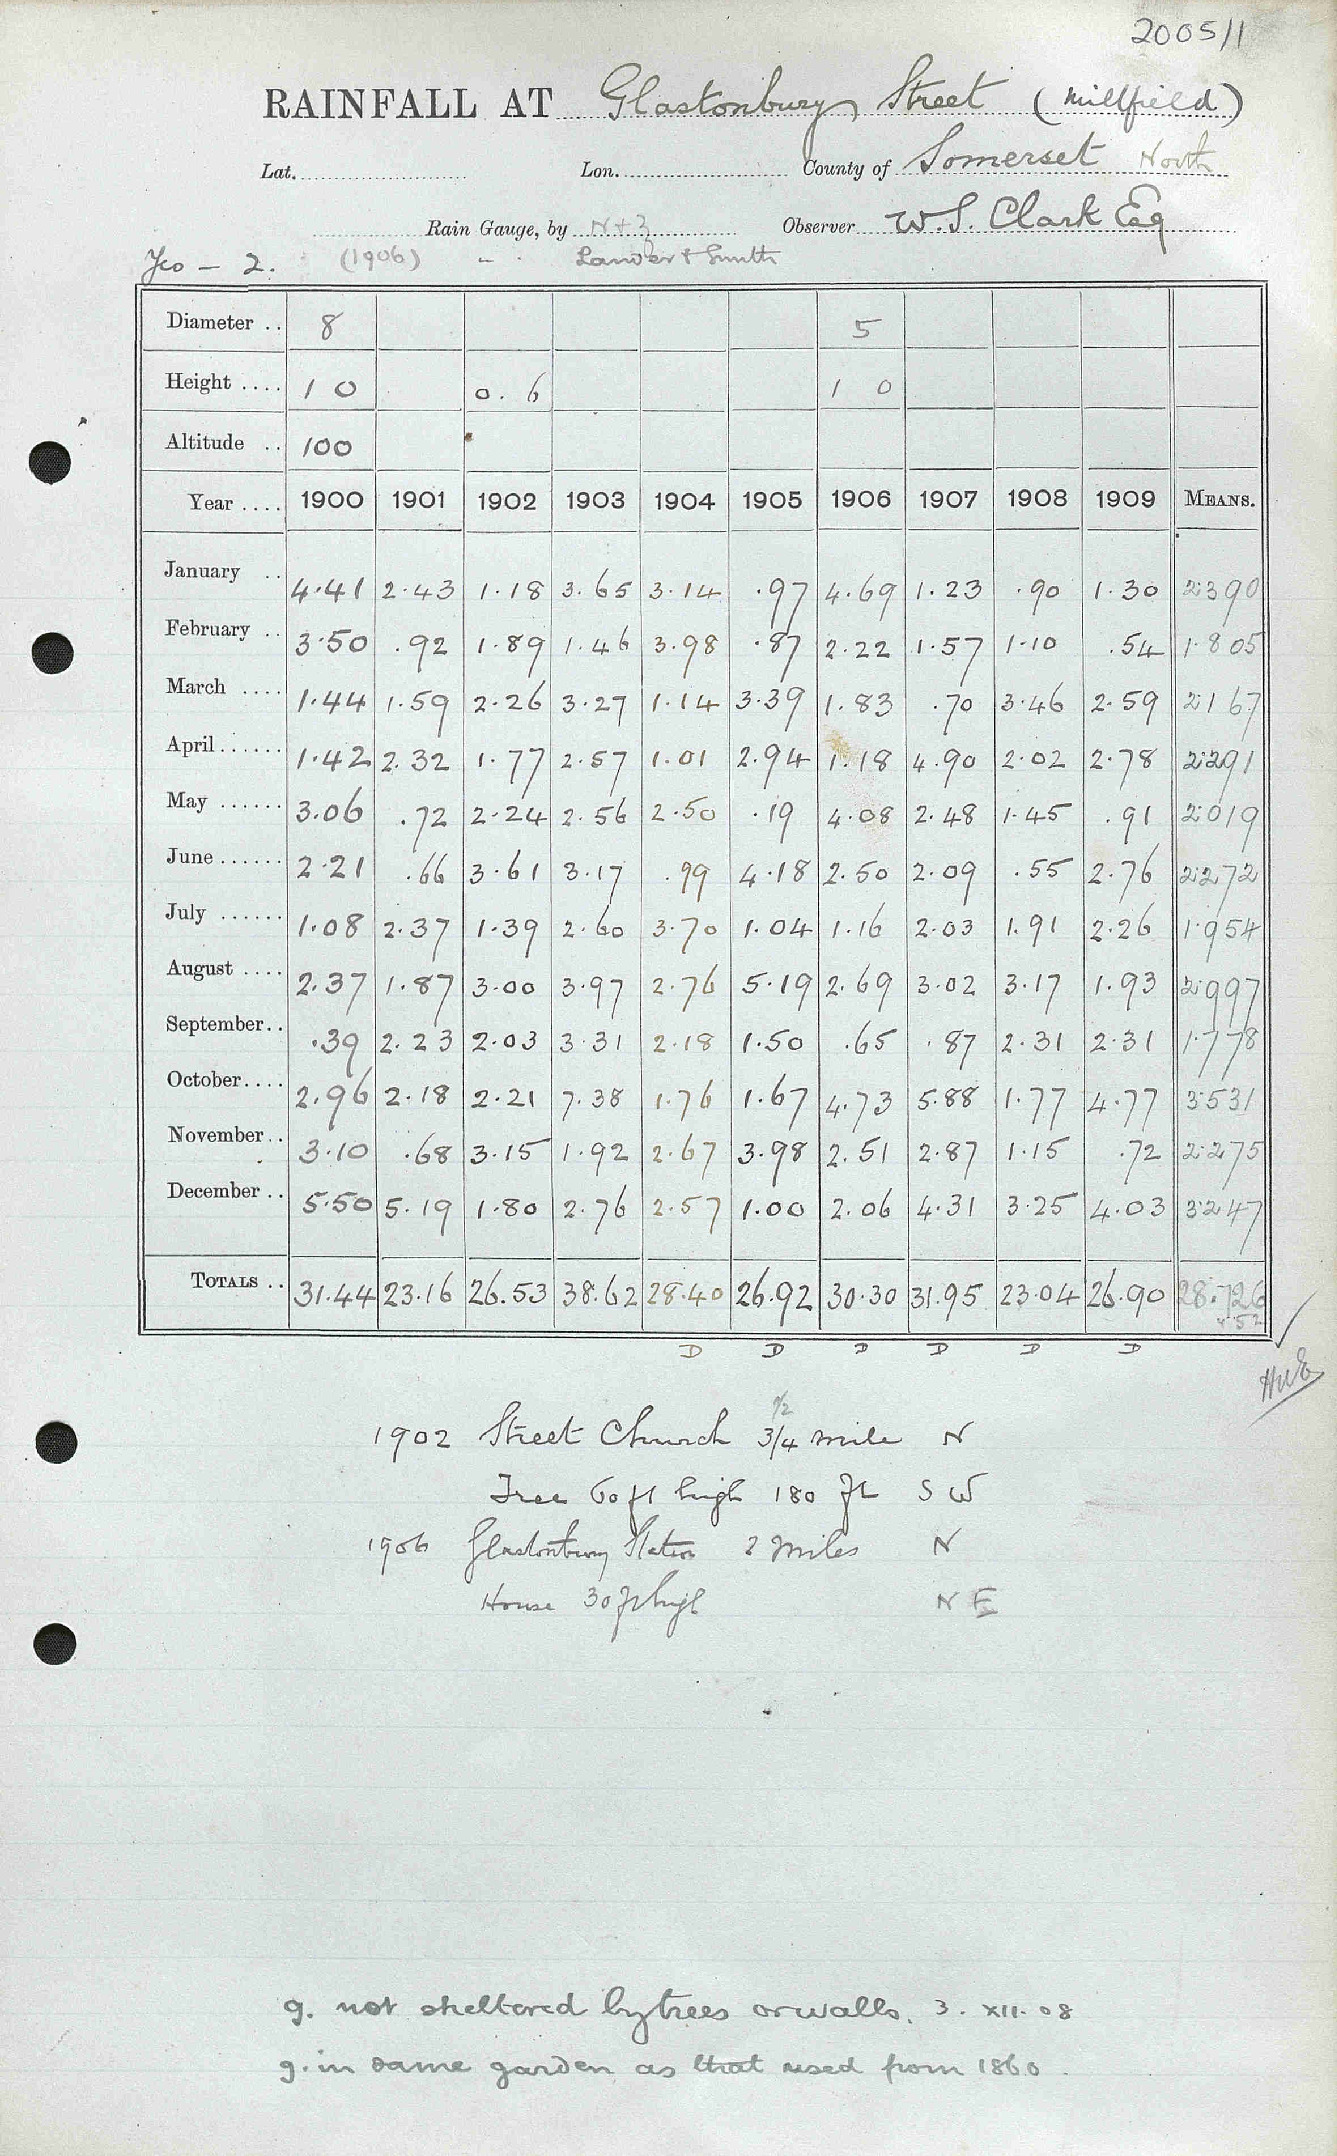 2005/1
RAINFALL AT Glastonbury Street (Millfield)
Lat. Lon. County of Somerset North
Rain Gauge, by N+Z Observer W.S. Clark Esq
Yeo - 2. (1906) " Lander & Smith
Diameter .. 8 5
Height .... 1 0 0. 6 1 0
Altitude .. 100
Year .... 1900 1901 1902 1903 1904 1905 1906 1907 1908 1909 MEANS.
January .. 4.41 2.43 1.18 3.65 3.14 .97 4.69 1.23 .90 1.30 2.390
February .. 3.50 .92 1.89 1.46 3.98 .87 2.22 1.57 1.10 .54 1.805
March .... 1.44 1.59 2.26 3.27 1.14 3.39 1.83 .70 3.46 2.59 2.167
April ...... 1.42 2.32 1.77 2.57 1.01 2.94 1.18 4.90 2.02 2.78 2.291
May ...... 3.06 .72 2.24 2.56 2.50 .19 4.08 2.48 1.45 .91 2.019
June ...... 2.21 .66 3.61 3.17 .99 4.18 2.50 2.09 .55 2.76 2.272
July ...... 1.08 2.37 1.39 2.60 3.70 1.04 1.16 2.03 1.91 2.26 1.954
August .... 2.37 1.87 3.00 3.97 2.76 5.19 2.69 3.02 3.17 1.93 2.997
September.. .39 2.23 2.03 3.31 2.18 1.50 .65 .87 2.31 2.31 1.778
October.... 2.96 2.18 2.21 7.38 1.76 1.67 4.73 5.88 1.77 4.77 3.531
November.. 3.10 .68 3.15 1.92 2.67 3.98 2.51 2.87 1.15 .72 2.275
December .. 5.50 5.19 1.80 2.76 2.57 1.00 2.06 4.31 3.25 4.03 3.247
TOTALS .. 31.44 23.16 26.53 38.62 28.40 26.92 30.30 31.95 23.04 26.90 28.726
D D D D D D
HWE
1/2
1902 Street Church 3/4 mile N
Tree 60 ft high 180 ft S W
1906 Glastonbury Station 2 miles N
House 30 ft high N E
g. not sheltered by trees or walls. 3. XII. 08
g. in same garden as that used from 1860.